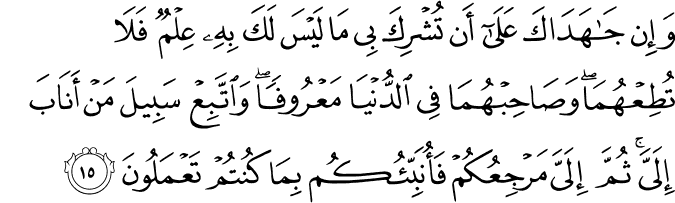 وَإِن جَـٰهَدَاكَ عَلَىٰٓ أَن تُشۡرِكَ بِي مَا لَيۡسَ لَكَ بِهِۦ عِلۡمٞ فَلَا
تُطِعۡهُمَاۖ وَصَاحِبۡهُمَا فِي ٱلدُّنۡيَا مَعۡرُوفٗاۖ وَٱتَّبِعۡ سَبِيلَ مَنۡ أَنَابَ
إِلَيَّۚ ثُمَّ إِلَيَّ مَرۡجِعُكُمۡ فَأُنَبِّئُكُم بِمَا كُنتُمۡ تَعۡمَلُونَ ١٥